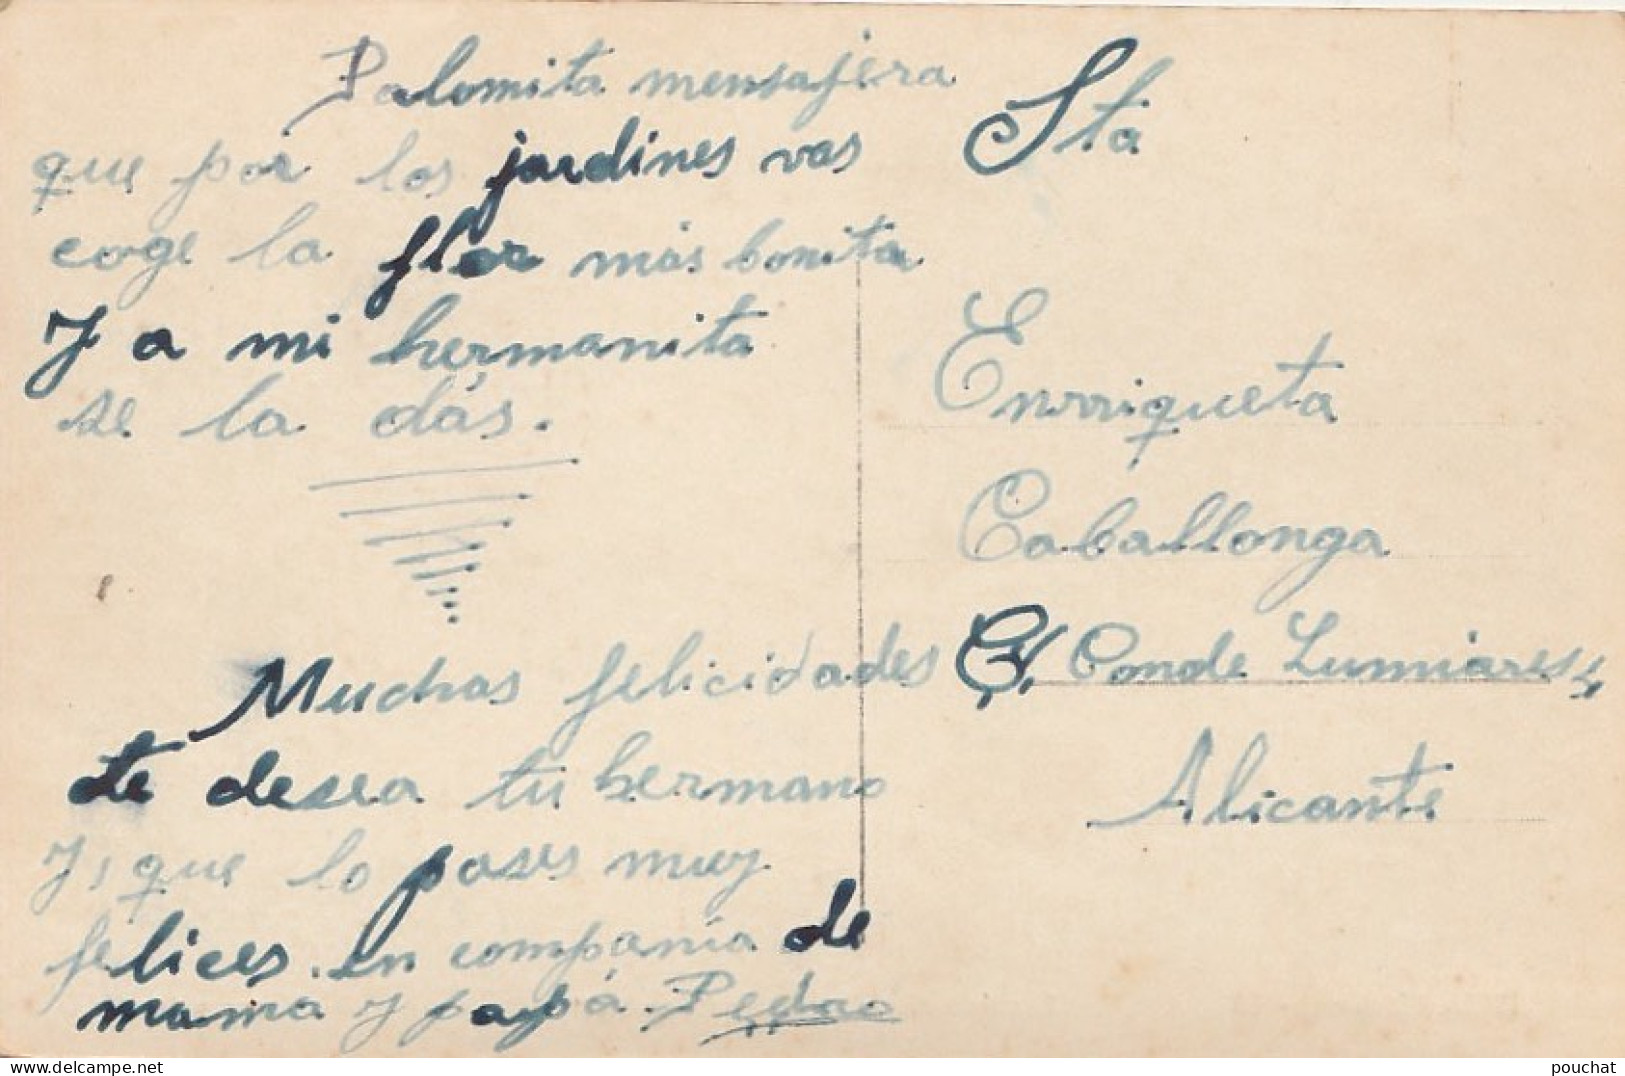 Palomita mensajera
que por los jardines vas
coge la flor más bonita
Y a mi hermanita
se la dás.
Muchas felicidades
te desea tu hermano
Y, que lo pases muy
felices en compania de
mama y papá Pedro
Sta
Enrriqueta
Caballonga
C/ Conde Lumiares
Alicante
delcampe.net
pouchat